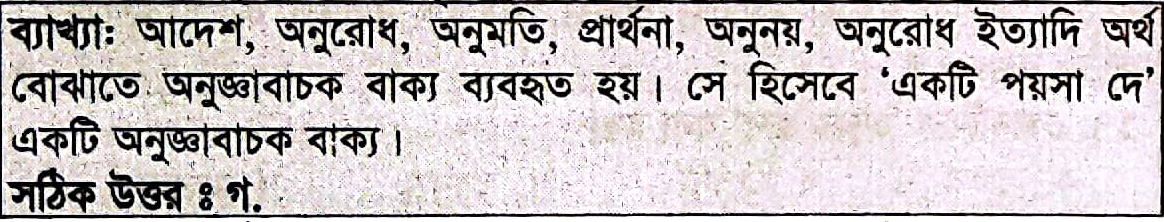 ব্যাখ্যা: আদেশ, অনুরোধ, অনুমতি, প্রার্থনা, অনুনয়, অনুরোধ ইত্যাদি অর্থ
বোঝাতে অনুজ্ঞাবাচক বাক্য ব্যবহৃত হয়। সে হিসেবে ‘একটি পয়সা দে’
একটি অনুজ্ঞাবাচক বাক্য।
সঠিক উত্তর ঃ গ.